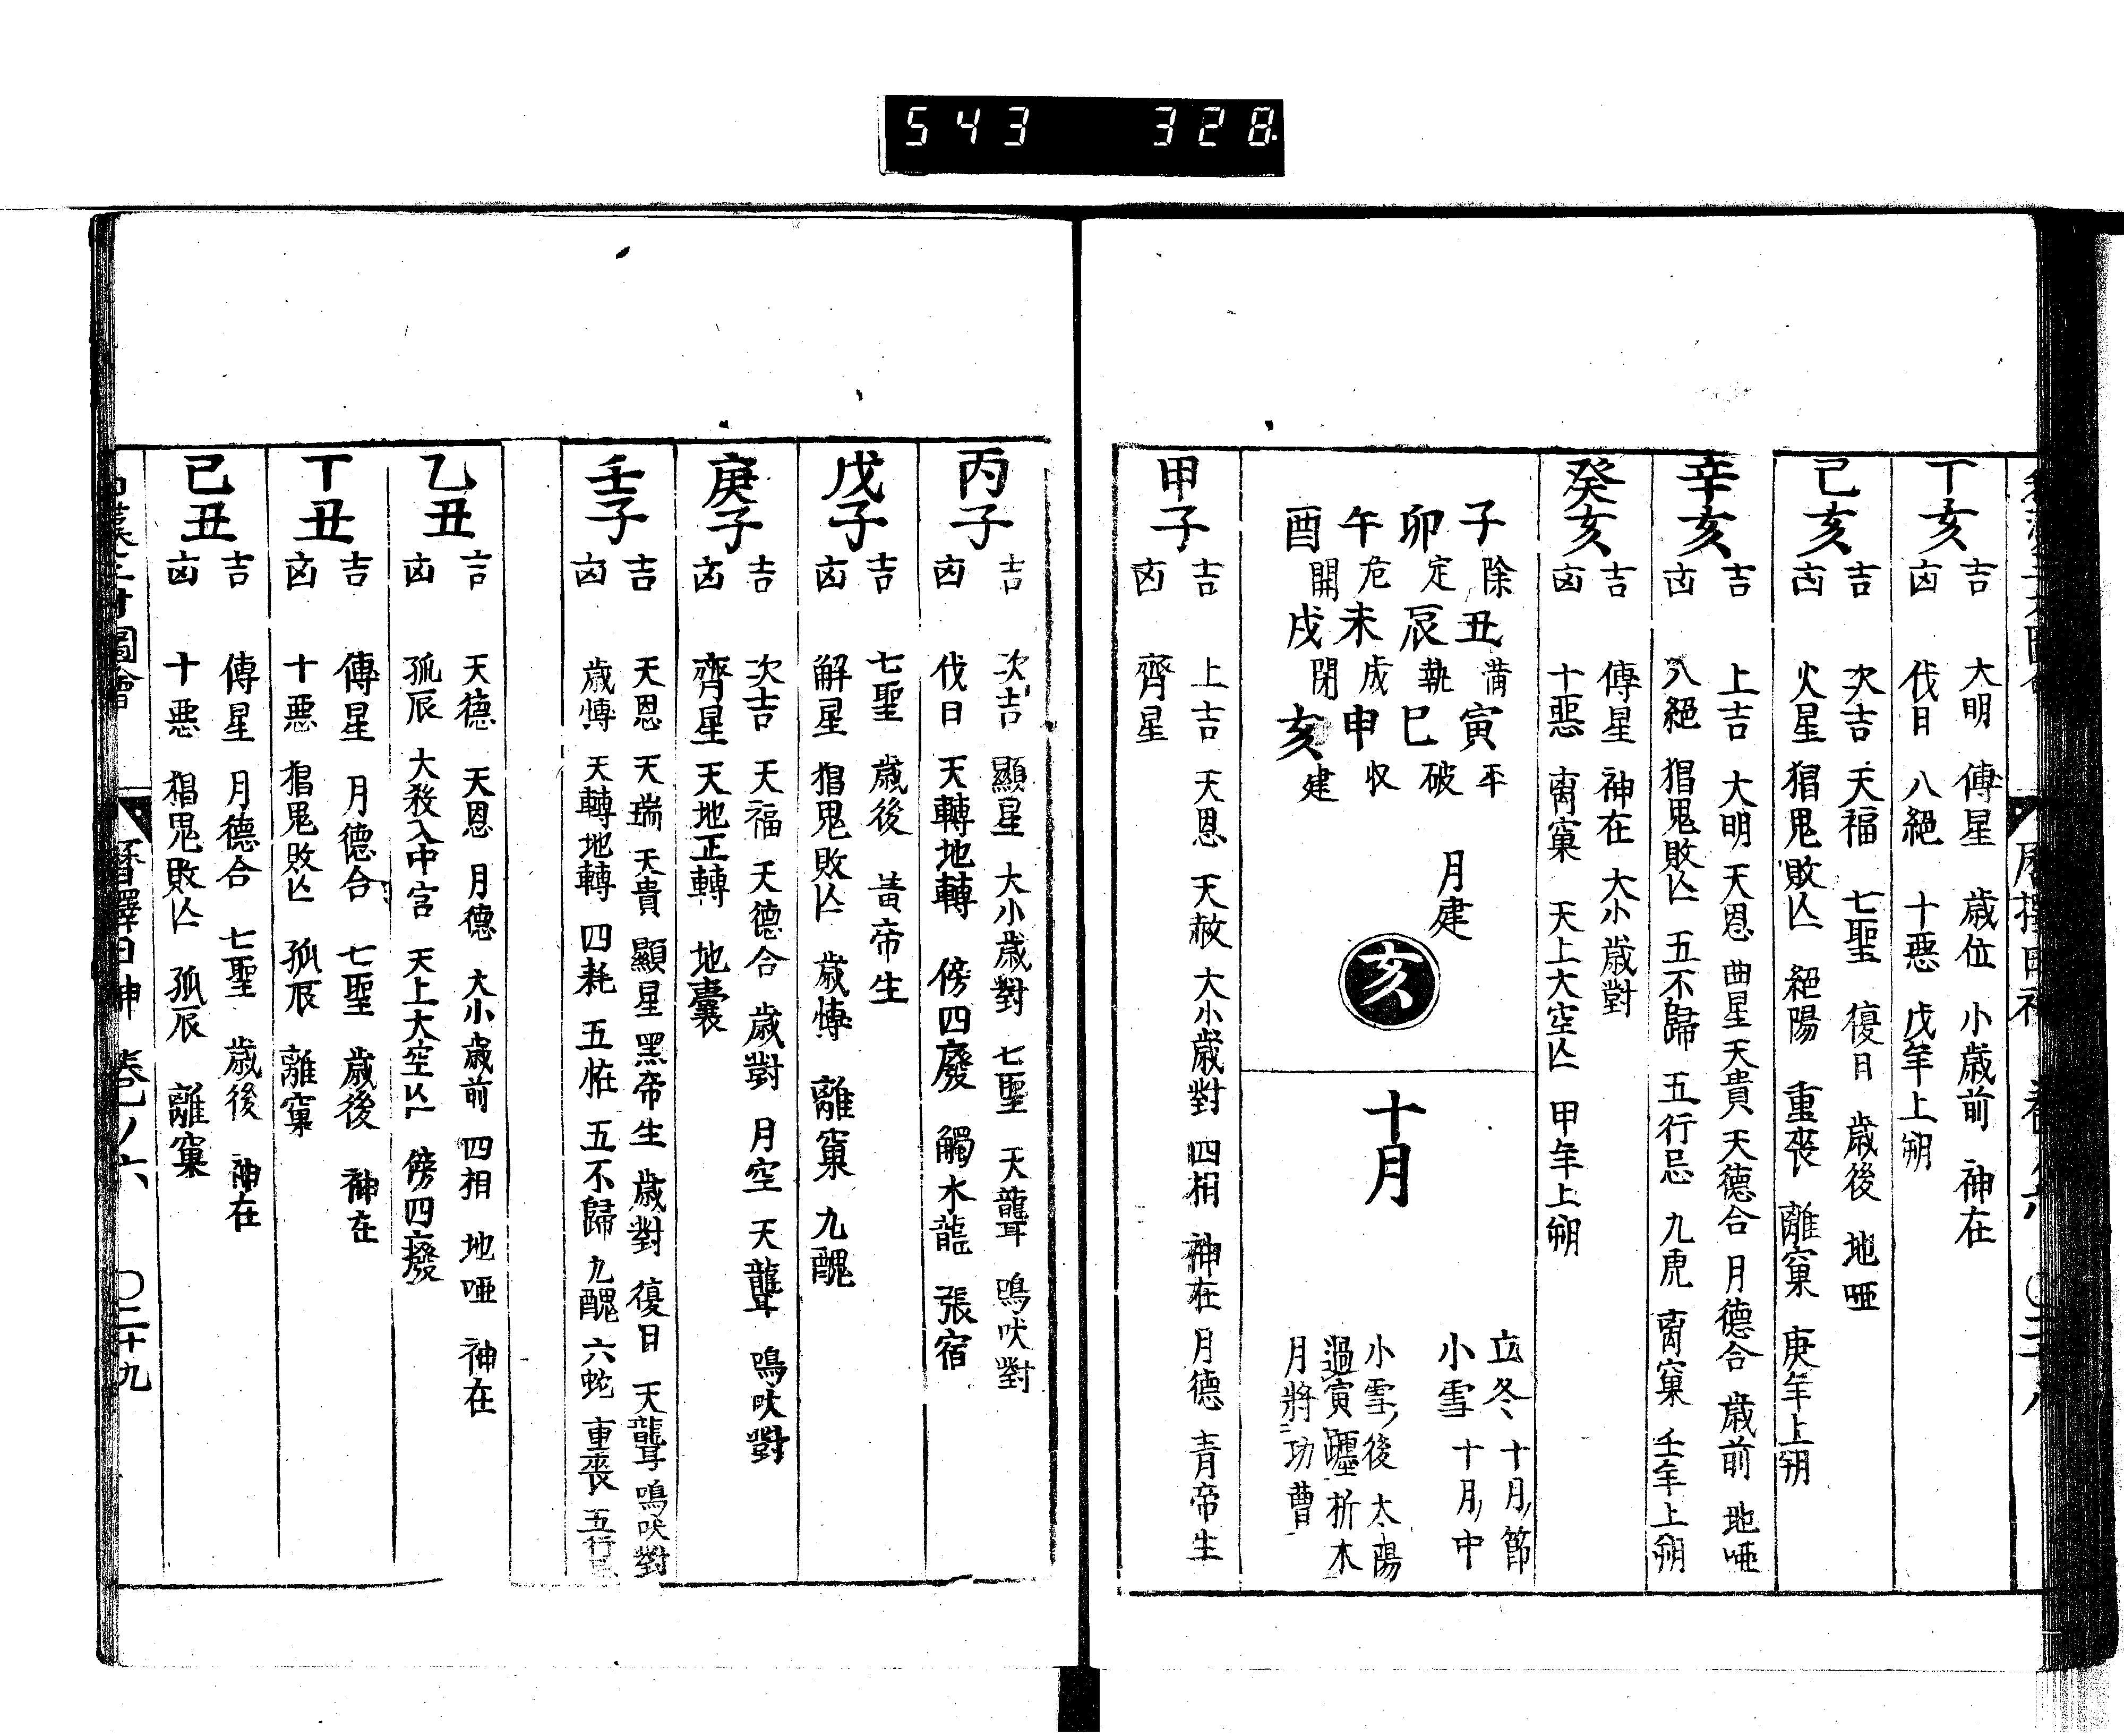 543 328
丁亥
吉 大明 傳星 歳位 小歳前 神在
凶 伐日 八絕 十惡 戊年上朔
己亥
吉 次吉 天福 七聖 復日 歳後 地啞
凶 火星 猖鬼敗亾 絕陽 重喪 離窠 庚年上朔
辛亥
吉 上吉 大明 天恩 曲星 天貴 天德合 月德合 歳前 地啞
凶 八絕 猖鬼敗亾 五不歸 五行忌 九虎 离窠 壬年上朔
癸亥
吉 傳星 神在 大小歳對
凶 十惡 离窠 天上大空亾 甲年上朔
子除 丑満 寅平
卯定 辰執 巳破
午危 未成 申收
酉開 戌閉 亥建
月建
亥
十月
立冬 十月節
小雪 十月中
小雪後太陽
過寅躔析木
月將功曹
甲子
吉 上吉 天恩 天赦 大小歳對 四相 神在 月德 青帝生
凶 齊星
丙子
吉 次吉 顯星 大小歳對 七聖 天聾 鳴吠對
凶 伐日 天轉地轉 傍四廢 觸水龍 張宿
戊子
吉 七聖 歳後 黃帝生
凶 解星 猖鬼敗亾 歳愽 離窠 九醜
庚子
吉 次吉 天福 天德合 歳對 月空 天聾 鳴吠對
凶 齊星 天地正轉 地囊
壬子
吉 天恩 天瑞 天貴 顯星 黑帝生 歳對 復日 天聾 鳴吠對
凶 歳愽 天轉地轉 四耗 五恠 五不歸 九醜 六蛇 重喪 五行忌
乙丑
吉 天德 天恩 月德 大小歳前 四相 地啞 神在
凶 孤辰 大殺入中宮 天上大空亾 傍四廢
丁丑
吉 傳星 月德合 七聖 歳後 神在
凶 十惡 猖鬼敗亾 孤辰 離窠
己丑
吉 傳星 月德合 七聖 歳後 神在
凶 十惡 猖鬼敗亾 孤辰 離窠
圖會 曆擇日神 卷ノ六 〇二十九